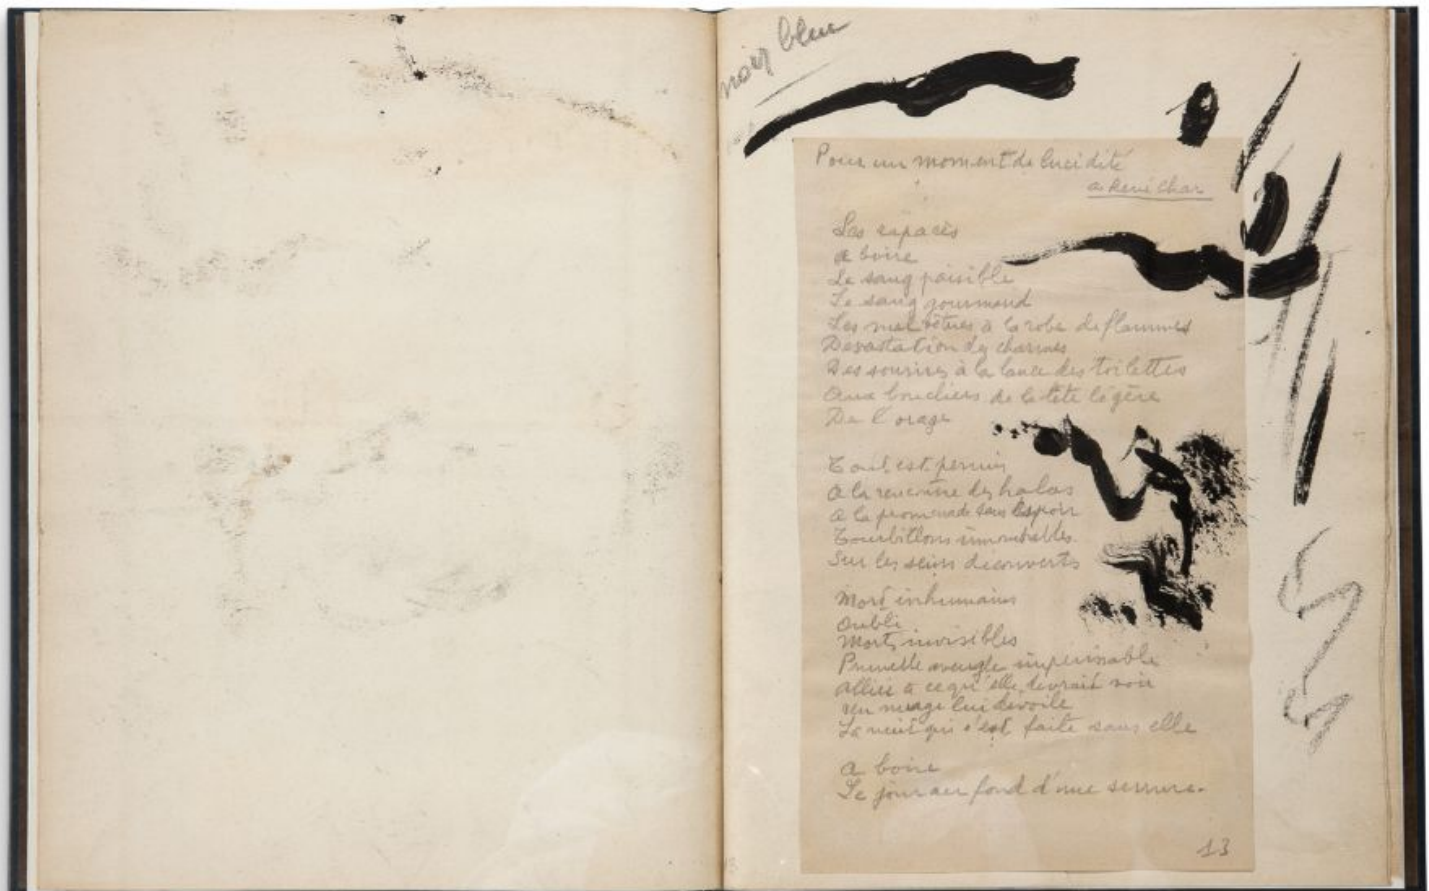 noir bleu
Pour un moment de lucidité
a René Char
Les rapaces
A boire
Le sang paisible
Le sang gourmand
Les mal vêtues à la robe de flammes
Devastation des charmes
Des sourires à la lance des toilettes
Aux boucliers de la tête légère
De l'orage
Tout est permis
A la rencontre des halos
A la promenade sans espoir
Tourbillons immuables
Sur les seins découverts
Mort inhumains
Oubli
Morts invisibles
Prunelle aveugle impérissable
Alliée a ce qu'elle devrait voir
un nuage lui dévoile
La nuit qui s'est faite sans elle
A boire
Le jour au fond d'une serrure.
13